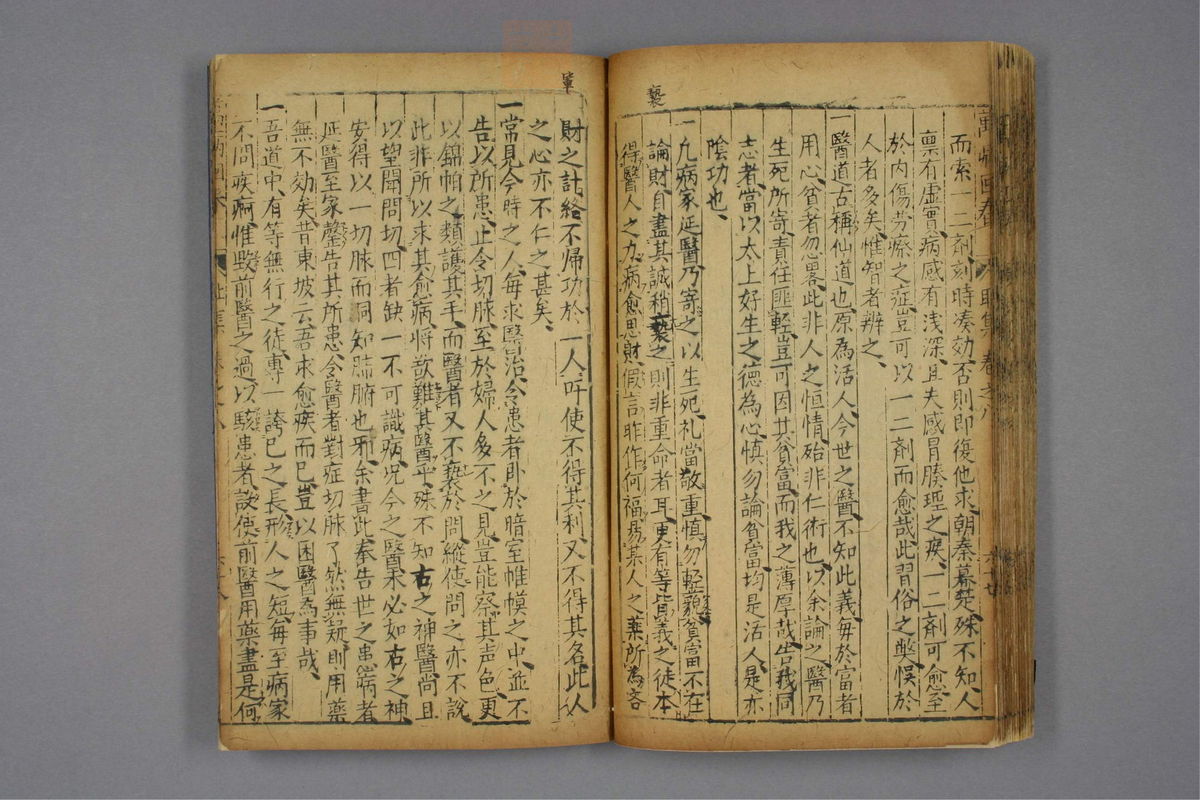 褻
而索一二剤刻時湊効否則即復他求朝秦暮楚殊不知人
禀有虚實病感有浅深且夫感冒腠理之疾一二剤可愈至
於内傷劳瘵之症豈可以一二剤而愈哉此習俗之弊悮於
人者多矣惟智者辨之
一醫道古稱仙道也原為活人今世之醫不知此義毎於富者
用心貧者忽畧此非人之恒情殆非仁術也以余論之醫乃
生死所寄責任匪輕豈可因其貧富而我之薄厚哉告我同
志者當以太上好生之德為心慎勿論貧富均是活人是亦
陰功也
一凢病家延醫乃寄之以生死礼當敬重慎勿輕藐貧富不在
論財自盡其誠稍褻之則非重命者耳更有等皆義之徒本
得醫人之力病愈思財假言昨作何福易某人之薬所為吝
財之計終不帰功於一人吁使不得其利又不得其名此人
之心亦不仁之甚矣
一常見今時之人毎求醫治令患者卧於暗室帷幙之中並不
告以所患止令切脉至於婦人多不之見豈能察其声色更
以錦帕之類護其手而醫者又不褻於問縱使問之亦不說
此非所以求其愈病将欲難其醫乎殊不知古之神醫尚且
以望聞問切四者缺一不可識病况今之醫未必如古之神
安得以一切脉而洞知臟腑也邪余書此奉告世之患病者
延醫至家罄告其所患令醫者對症切脉了然無疑則用薬
無不効矣昔東坡云吾求愈疾而已豈以困醫為事哉
一吾道中有等無行之徒專一誇已之長形人之短毎至病家
不問疾疴惟毀前醫之過以駭患者設使前醫用藥盡是何